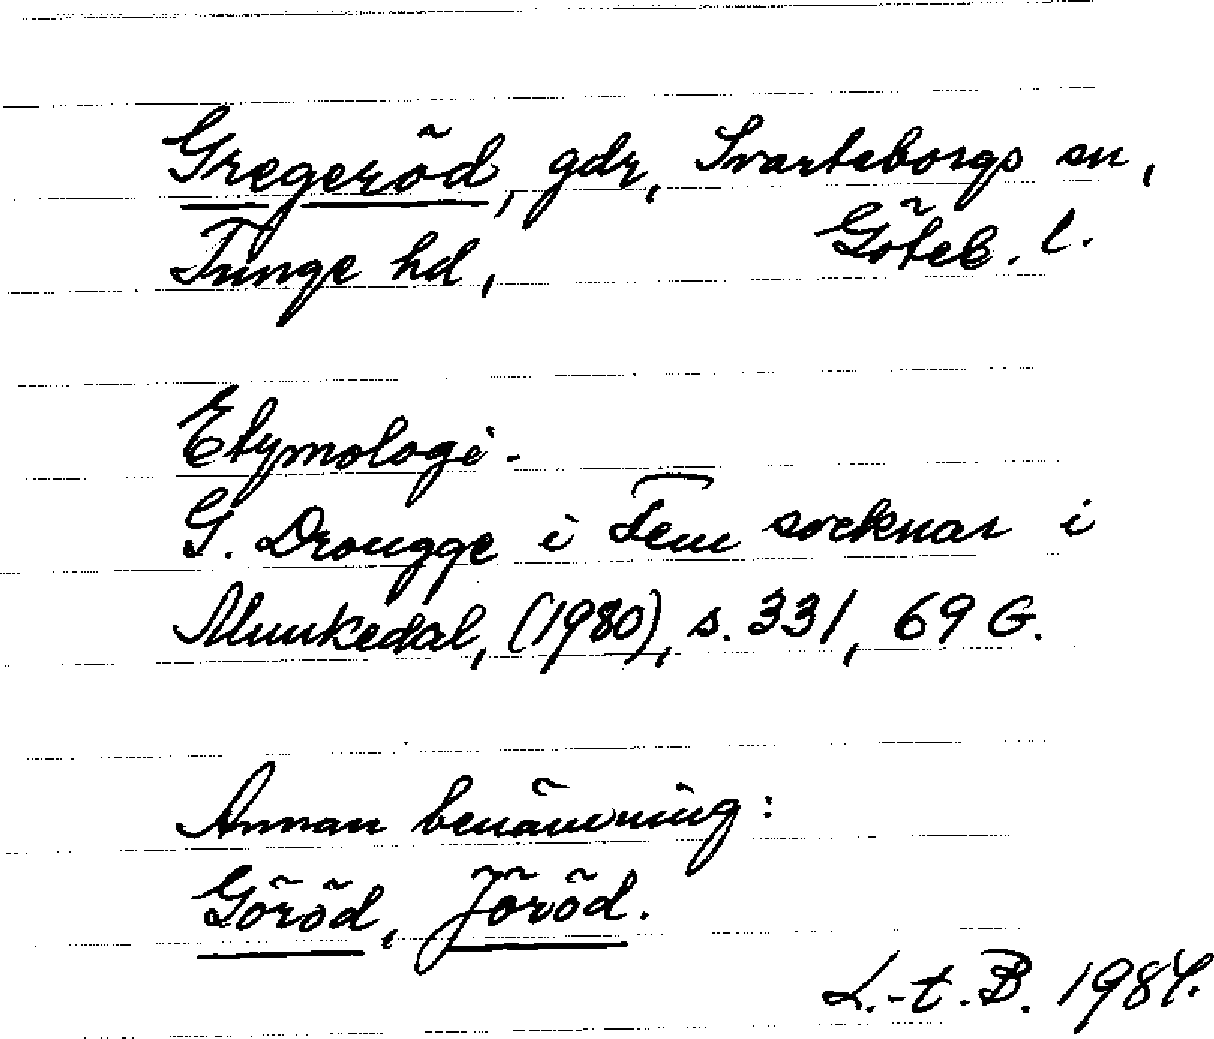 Gregeröd, gdr, Svarteborgs sn,
Tunge hd, Göteb. l.
Etymologi.
G. Drougge i Fem socknar i
Munkedal, (1980), s. 331, 69 G.
Annan benämning:
Göröd, Jöröd.
L.-t. B. 1984.